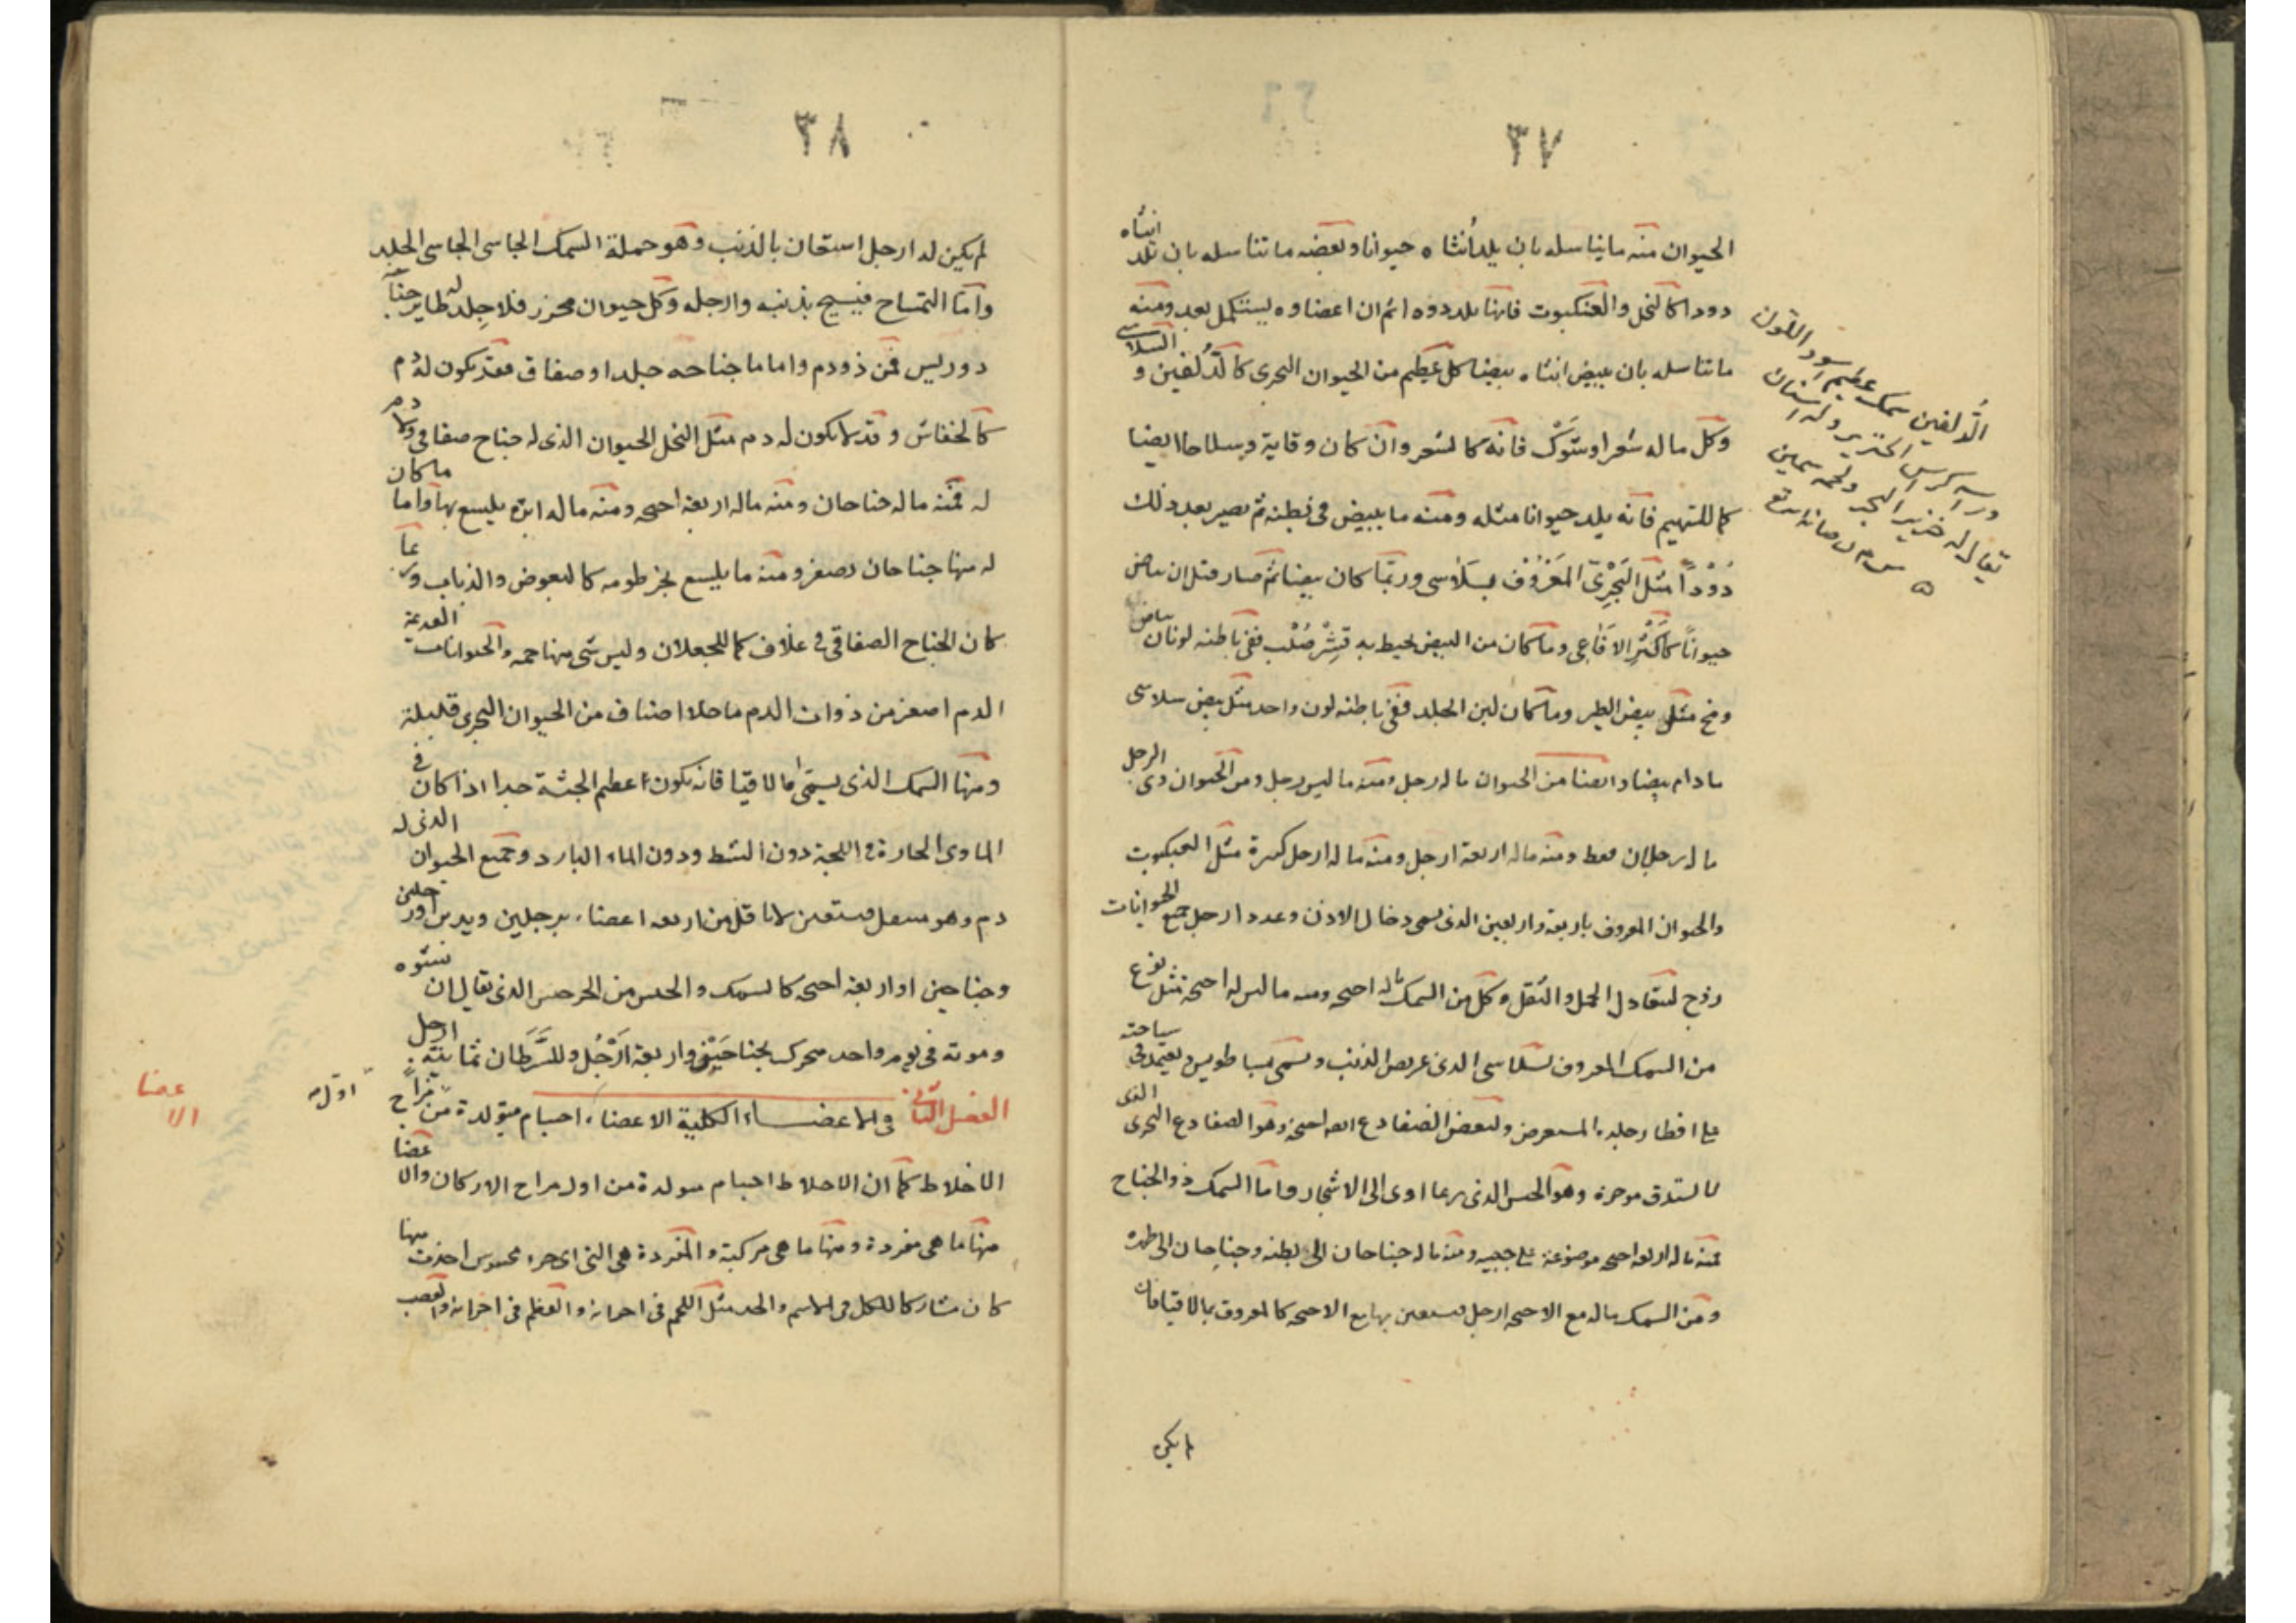 ٣٧
الحيوان منه ما يتناسله بان يلد أنثاه حيوانا وبعضه ما تناسله بان تلد انثاه
دودا كالنحل والعنكبوت فانها تلد دودا ثم ان اعضاوه يستكمل بعد ومنه
ما تناسله بان يبيض انثاه بيضا كل عظيم من الحيوان البحرى كالدُلفين و السلاسى
وكل ما له شعر او شوك فانه كالشعر وان كان وقاية وسلاحا ايضا
كما للشيهم فانه يلد حيوانا مثله ومنه ما يبيض فى بطنه ثم يصير بعد ذلك
دُوْدًا مثل البَحْرِىّ المَعْرُوْف بسَلَاسى وربما كان بيضا ثم صار قبل ان يباض
حيوانًا كاَكْثَرِ الافَاعِى وما كان من البيض يحيط به قِشْر صُلْب ففى باطنه لونان بياض
ومح مثل بيض الطير وما كان لين الجلد ففى باطنه لون واحد مثل بيض سلاسى
ما دام بيضا وايضا من الحيوان ما له رجل ومنه ما ليس رجل ومن الحيوان ذى الرجل
ما له رجلان فقط ومنه ما له اربعة ارجل ومنه ما له ارجل كثيرة مثل العنكبوت
والحيوان المعروف باربعة واربعين الذى يسمى دخال الاذن وعدد ارجل جميع الحيوانات
زوج لتعادل الحمل والثقل وكل من السمك ما له اجنحه ومنه ما ليس له اجنحه مثل نوع
من السمك المعروف بسلاسى الذى عريض الذنب ويسمى بساطويس ويعتمد فى سباحته
على اقطار جلده المستعرض ولبعض الضفادع اجنحة وهو الضفادع البحرى الذى
وهو الجنس الذى ربما اوى الى الاشجار واما السمك ذو الجناح
فمنه ما له اربعه اجنحه موضوعة على جنبيه ومنه ما له جناحان الى بطنه وجناحان الى ظهره
ومن السمك ما له مع الاجنحه ارجل فيستعين بها مع الاجنحه كالمعروف بمالاقيا فان
لم يكن
الدُّلفين سمك عظيم اسود اللون
وراسه كراس الخنزير وله اسنان
يقال له خنزير البحر ولحمه سمين
٣٨
لم يكن له ارجل استعان بالذنب وهو جملة السمك الجاسى الجاسى الجلد
واما التمساح فيسبح بذنبه وارجله وكل حيوان محرز فلا جلد له طاير جناح
ذو ريش فمن ذو دم واما ما جناحه جلد او صفاق فقد يكون له دم
كالخفاش وقد لا يكون له دم مثل النحل الحيوان الذى له جناح صفاقى ولا دم
له فمنه ما له جناحان ومنه ما له اربعة اجنحه ومنه ما له ابرة يلسع بها واما ما كان
له منها جناحان يصغر ومنه ما يلسع بخرطومه كالبعوض والذباب وربما
كان الجناح الصفاقى فى غلاف كما للجعلان وليس شى منها حمه والحيوانات العديمة
الدم اصغر من ذوات الدم ما خلا اصناف من الحيوان البحرى قليلة
ومنها السمك الذى يسمى مالاقيا فانه يكون اعظم الجثة جدا اذا كان فى
الماوى الحارة فى اللجة دون الشط ودون الماء البارد وجميع الحيوان الذى له
دم وهو منتقل فيستعين لا باقل من اربعه اعضاء برجلين ويدين او رجلين
وجناحين او اربعة اجنحه كالسمك والجنس من الذى يقال ان نشوه
وموته فى يوم واحد متحرك بجناحَيْنِ واربعة اَرْجُل وللسَّرَطَان ثمانية ارجل
الفصل الثانى فى الاعضاء الكلية الاعضاء اجسام متولدة من اول مزاج
الاخلاط كما ان الاخلاط اجسام متولدة من اول مزاج الاركان والاعضا
منها ما هى مفردة ومنها ما هى مركبة والمفردة هى التى اى جزء محسوس اخذت منها
كان مشاركا للكل فى الاسم والحد مثل اللحم فى اجزائه والعظم فى اجزائه والعصب
اول
الاعضا